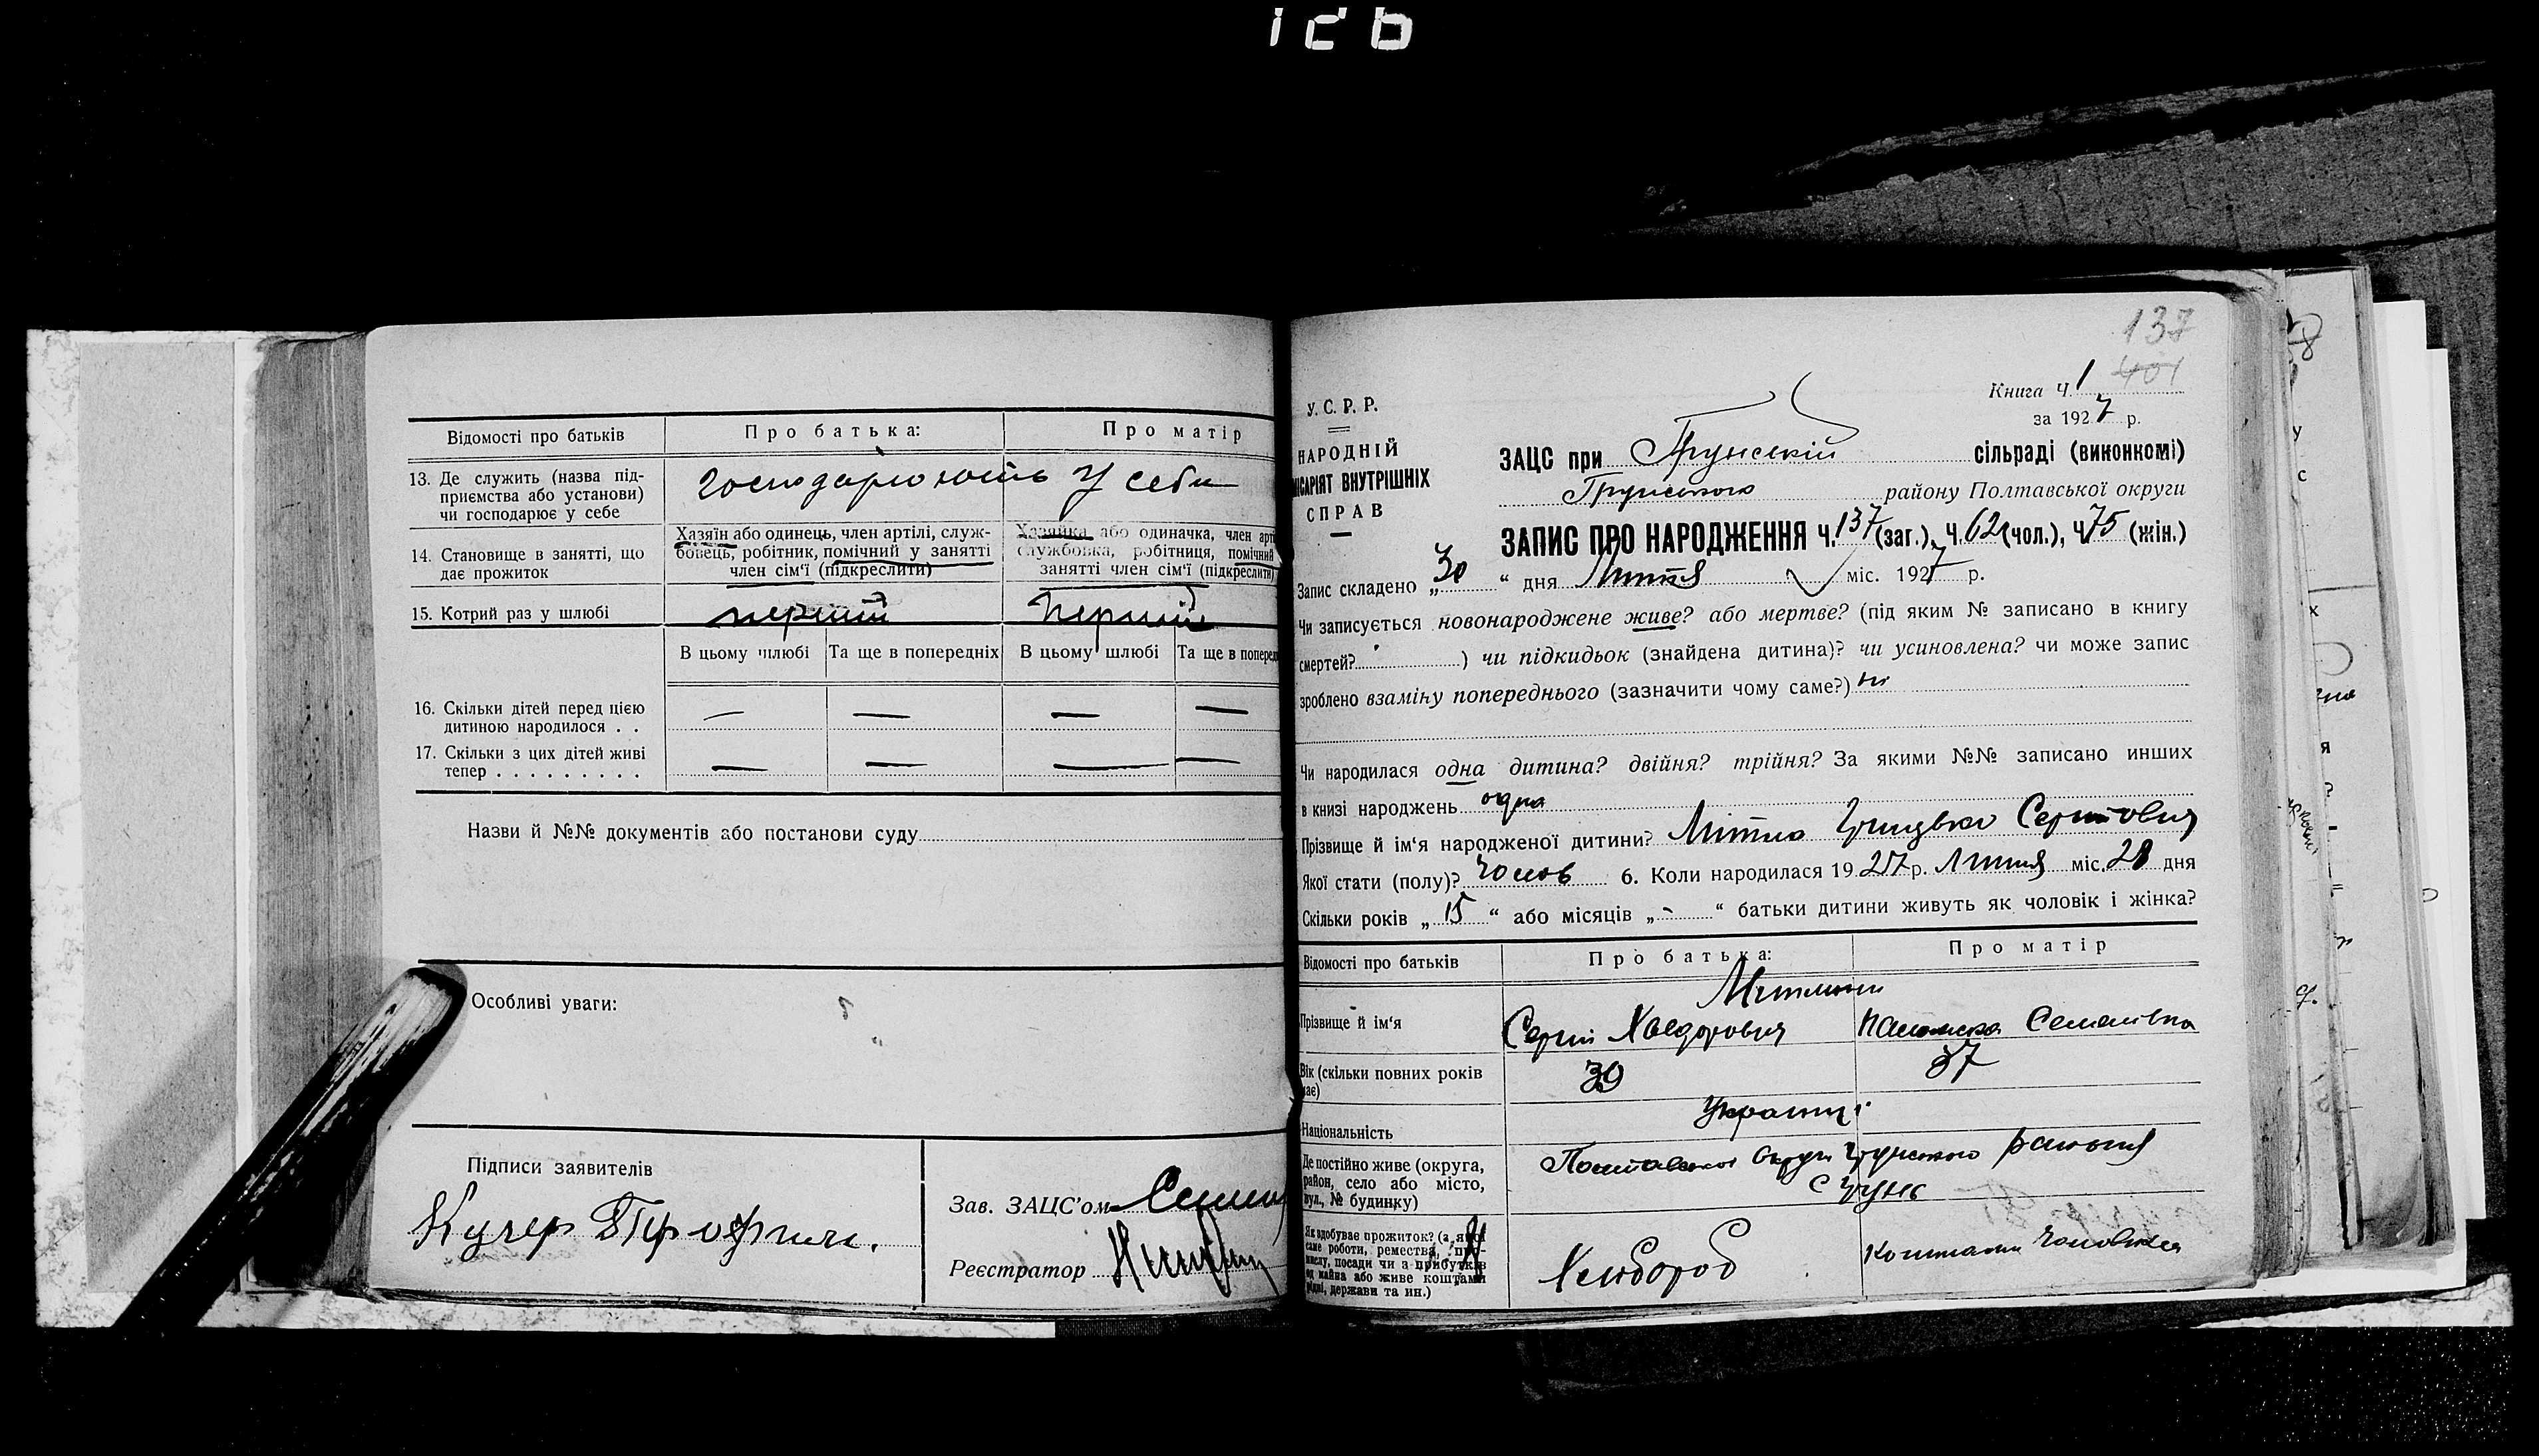 126
Відомості про батьків
Про батька:
Про матір
13. Де служить (назва під-
приємства або установи)
чи господарює у себе
господарюють у себе
14. Становище в занятті, що
дає прожиток
Хазяїн або одинець, член артілі, служ-
бовець, робітник, помічний у занятті
член сім'ї (підкреслити)
Хазяйка або одиначка, член арті
службовка, робітниця, помічний
занятті член сім'ї (підкреслити)
15. Котрий раз у шлюбі
перший
перший
В цьому шлюбі
Та ще в попередніх
В цьому шлюбі
Та ще в поперед
16. Скільки дітей перед цією
дитиною народилося . .
— — — —
17. Скільки з цих дітей живі
тепер . . . . . . . . .
— — — —
Назви й №№ документів або постанови суду
Особливі уваги:
Підписи заявителів
Кучер
Зав. ЗАЦС'ом
Реєстратор
137
401
Книга Ч. 1
за 1927 р.
У. С. Р. Р.
НАРОДНІЙ
ІСАРІЯТ ВНУТРІШНІХ
СПРАВ
ЗАЦС при Грунській сільраді (виконкомі)
Грунського району Полтавської округи
ЗАПИС ПРО НАРОДЖЕННЯ Ч. 137 (заг.), Ч. 62 (чол.), Ч. 75 (жін.)
Запис складено „30“ дня Липня міс. 1927 р.
Чи записується новонароджене живе? або мертве? (під яким № записано в книгу
смертей? ) чи підкидьок (знайдена дитина)? чи усиновлена? чи може запис
зроблено взаміну попереднього (зазначити чому саме?) ні
Чи народилася одна дитина? двійня? трійня? За якими №№ записано инших
в книзі народжень одна
Прізвище й ім'я народженої дитини? Мітла Грицько Сергійович
Якої стати (полу)? Чолов 6. Коли народилася 1927 р. Липня міс. 28 дня
Скільки років „15“ або місяців „-“ батьки дитини живуть як чоловік і жінка?
Відомості про батьків
Про батька:
Про матір
Прізвище й ім'я
Сергій Хведорович
Семенівна
Вік (скільки повних років
має)
39
37
Національність
Українці
Де постійно живе (округа,
район, село або місто,
вул., № будинку)
Полтавської округи Грунського району
с Грунь
Як здобуває прожиток? (з якої
саме роботи, ремества, про-
мислу, посади чи з прибутків
од майна або живе коштами
рідні, держави та ин.)
Хлібороб
Коштами чоловіка